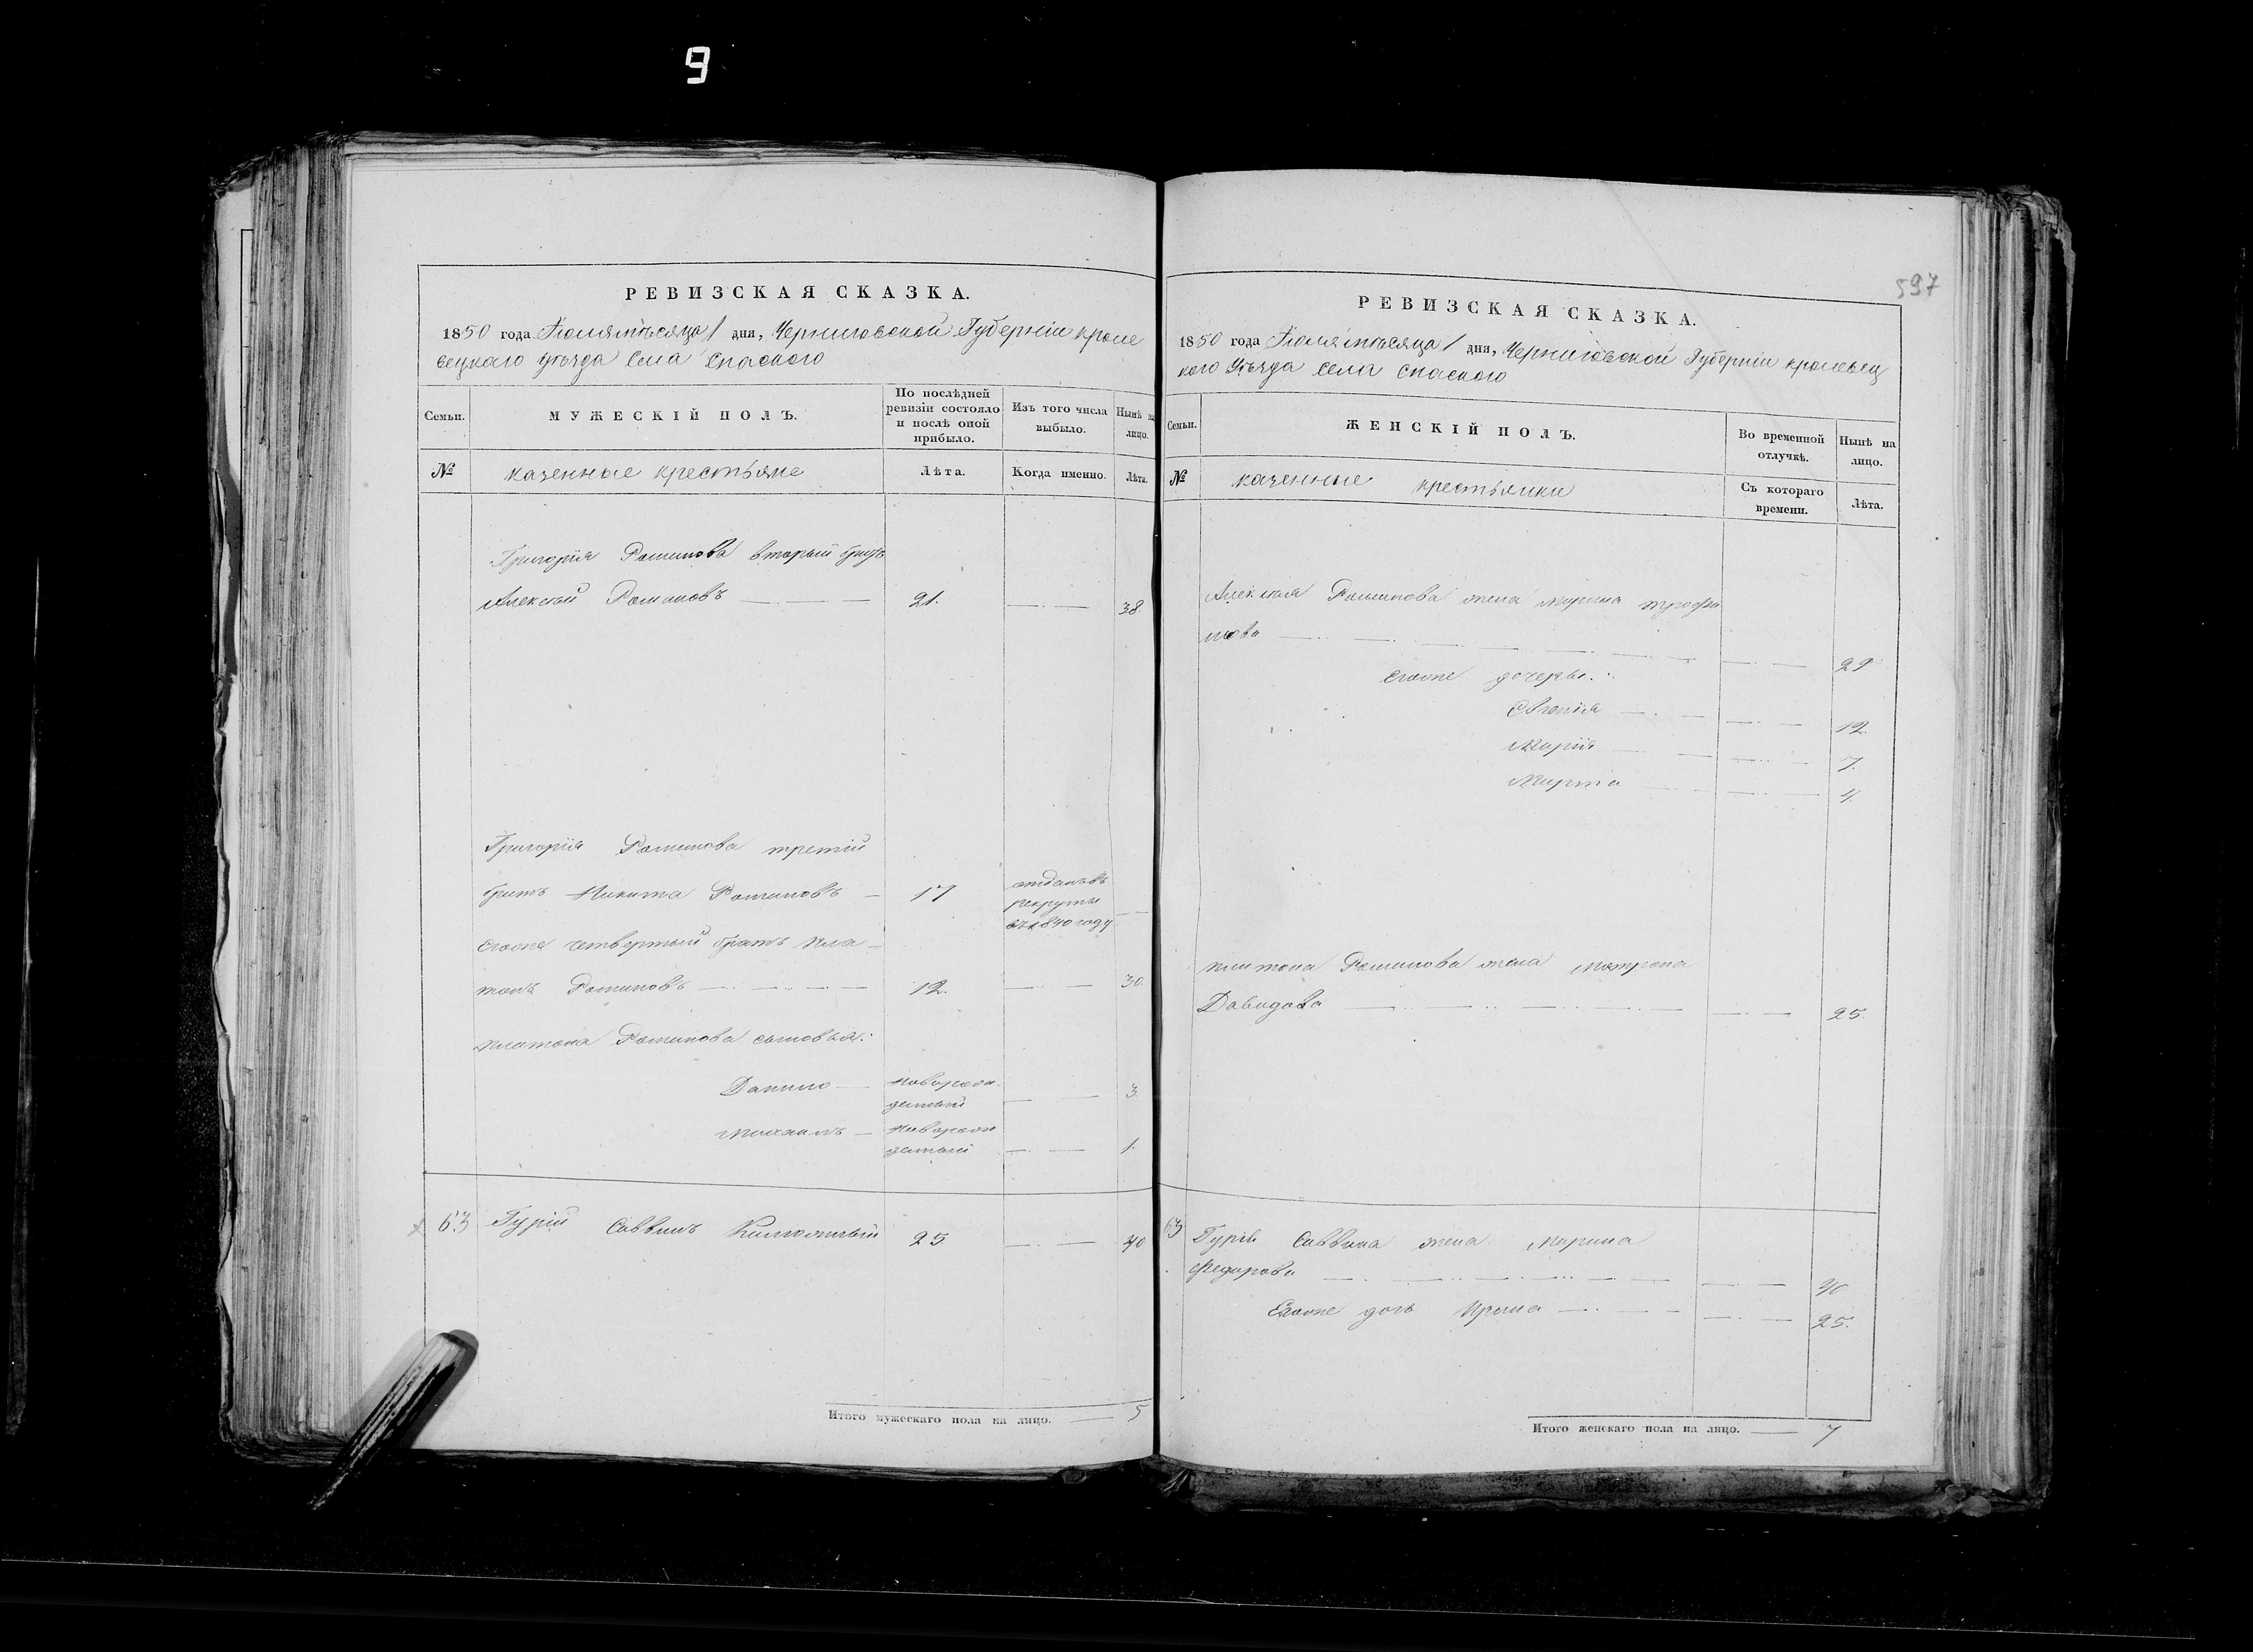 9
597
РЕВИЗСКАЯ СКАЗКА.
1850 года Іюля мѣсяца 1 дня, Черниговской Губерніи кроле
вецкаго уѣзда Села Спаского
Семьи.
МУЖЕСКІЙ ПОЛЪ.
По послѣдней ревизіи состояло и послѣ оной прибыло.
Изъ того числа выбыло.
Нынѣ на лицо.
№
казенные крестьяне
Лѣта.
Когда именно.
Лѣта.
Григорія Романова вторый братъ
Алексѣй Романовъ 21. 38.
Григорія Романова третій
братъ Никита Романовъ 17 отданъ въ рекруты въ 1840 году
егоже четвертый братъ Пла-
тонъ Романовъ 12. 30.
Платона Романова сыновья:
Данило новорож- денный 3.
Михаилъ новорож денный 1.
63 Гурій Саввинъ 25 40
Итого мужескаго пола на лицо. 5
РЕВИЗСКАЯ СКАЗКА.
1850 года Іюля мѣсяца 1 дня, Черниговской Губерніи кролевец
кого Уѣзда села Спаского
Семьи.
ЖЕНСКІЙ ПОЛЪ.
Во временной отлучкѣ.
Нынѣ на лицо.
№
казенные крестьянки
Съ котораго времени.
Лѣта.
Алексѣя Романова жена Марина Трофи
мова 29
егоже дочеры:
12.
Марія 7.
Марфа 4.
Платона Романова жена Матрона
Давидова 25.
63 Гурія Саввина жена Марина
Федорова 40
Егоже дочь 25.
Итого женскаго пола на лицо. 7